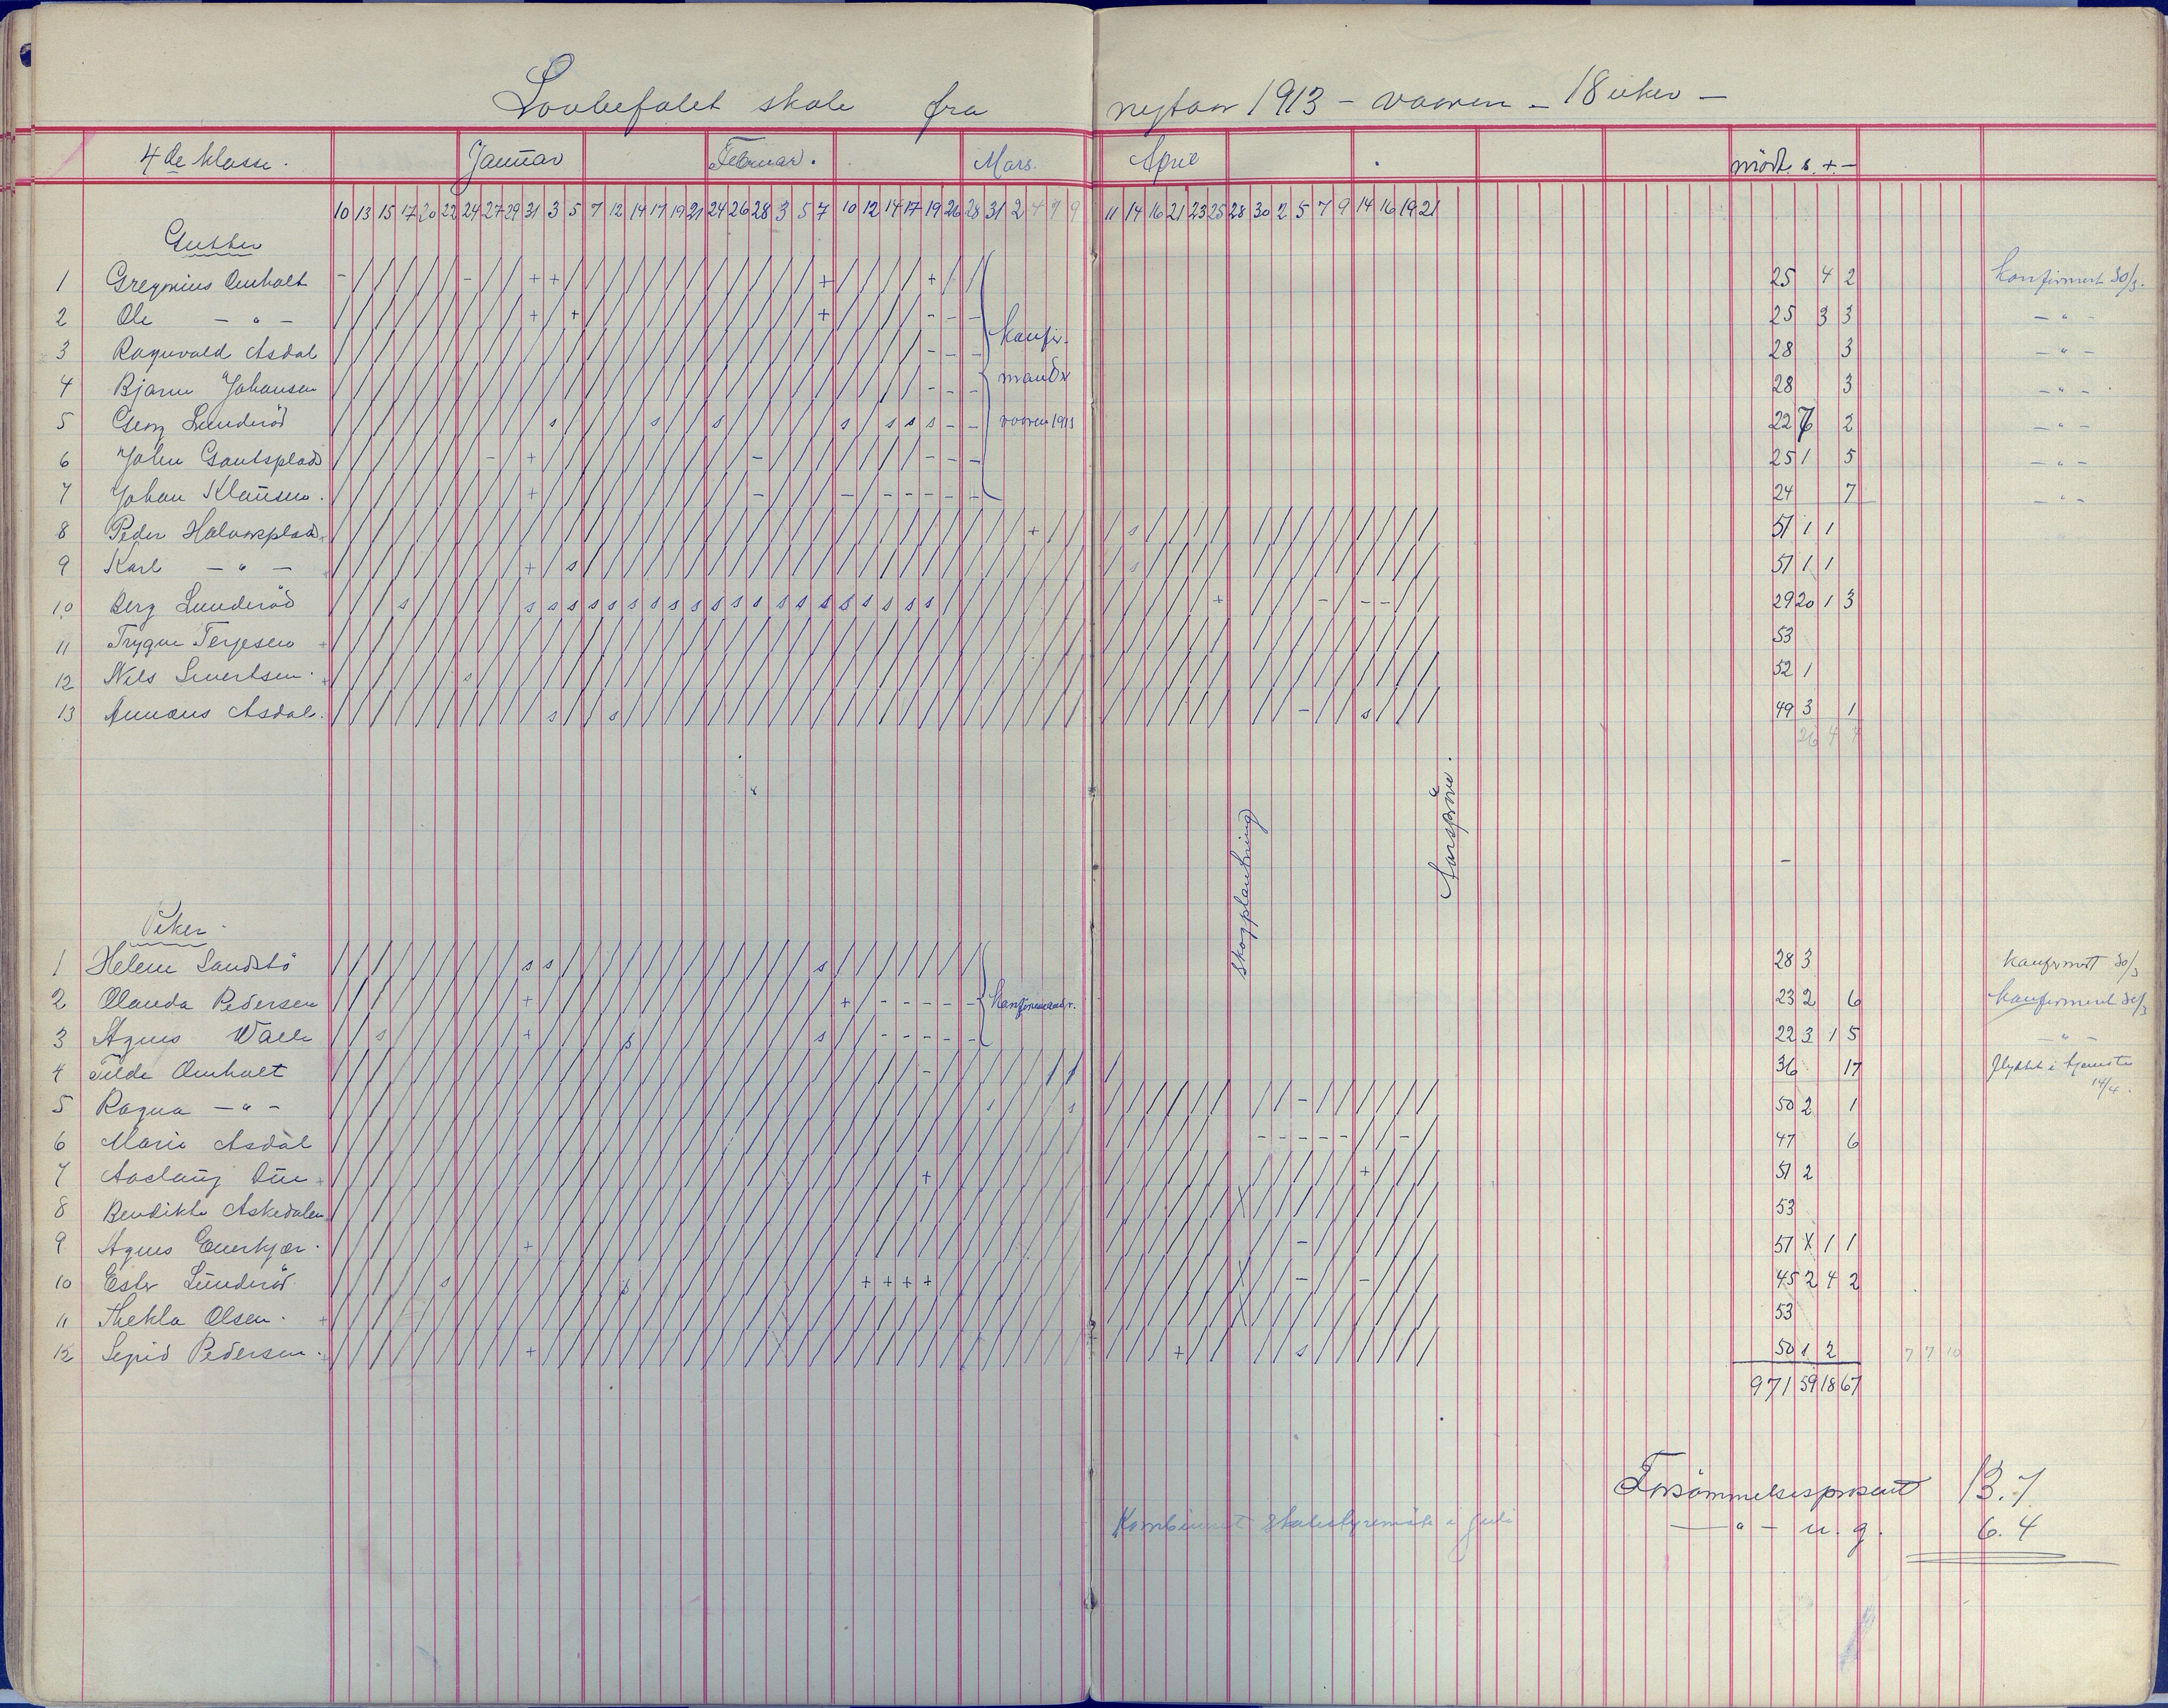 Lovbefalet skole fra nyttaar 1913 - vaaren - 18 uker -
4de klasse. Januar Februar. Mars. April mödt. s. + -
10 13 15 17 20 22 24 27 29 31 3 5 7 12 14 17 19 21 24 26 28 3 5 7 10 12 14 17 19 26 28 31 2 4 7 9 11 14 16 21 23 25 28 30 2 5 7 9 14 16 19 21
Gutter
1 Gregorius Omholt 25 4 2 Konfirmert 30/3.
2 Ole - " - 25 3 3 - " -
3 Ragnvald Asdal 28 3 - " -
4 Bjarne Johansen 28 3 - " -
5 Georg Lunderöd 22 7 2 - " -
6 John Gautsplads 25 1 5 - " -
7 Johan Klausen. 24 7 - " -
konfir-
mander
vaaren 1913
8 Peder Halvorsplads 51 1 1
9 Karl - " - 51 1 1
10 Berg Lunderöd 29 20 1 3
11 Trygve Terjesen 53
12 Nils Sivertsen. 52 1
13 Annæus Asdal. 49 3 1
26 4 7
skogplantning
Aarspröve.
Piker.
1 Helene Sandstö 28 3 Konfirmert 30/3
2 Olanda Pedersen 23 2 6 Konfirmert 30/3
3 Agnes Walle 22 3 1 5 - " -
konfirmander.
4 Tilda Omholt 36 17 flyttet i tjeneste 14/4.
5 Ragna - " - 50 2 1
6 Marie Asdal 47 6
7 Aaslaug Due 51 2
8 Bendikte Askedalen 53
9 Agnes Enerkjær. 51 X 1 1
10 Ester Lunderöd 45 2 4 2
11 Thekla Olsen. 53
12 Sigrid Pedersen. 50 1 2 7 7 10
971 59 18 67
Forsömmelsesprosent 13.7
- " - u. g. 6.4
Kombinert skolestyremöte i juli